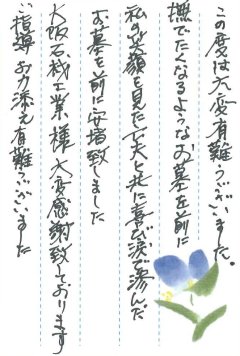 この度は大変有難うございました。
撫でたくなるようなお墓を前に
私の笑顔を見た亡夫と共に喜び涙で滲んだ
お墓を前に安堵致しました
大阪石材工業様 大変感謝致しております
ご指導 お力添え有難うございました